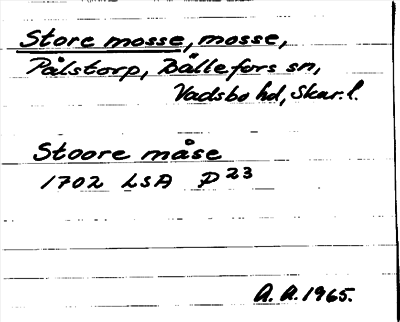 Store mosse, mosse,
Pålstorp, Bällefors sn,
Vadsbo hd, Skar. l.
Stoore måse
1702 LSA P 23
A. A. 1965.